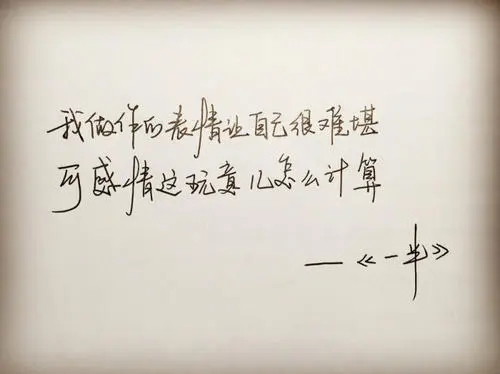 我做作的表情让自己很难堪
可感情这玩意儿怎么计算
——《一半》